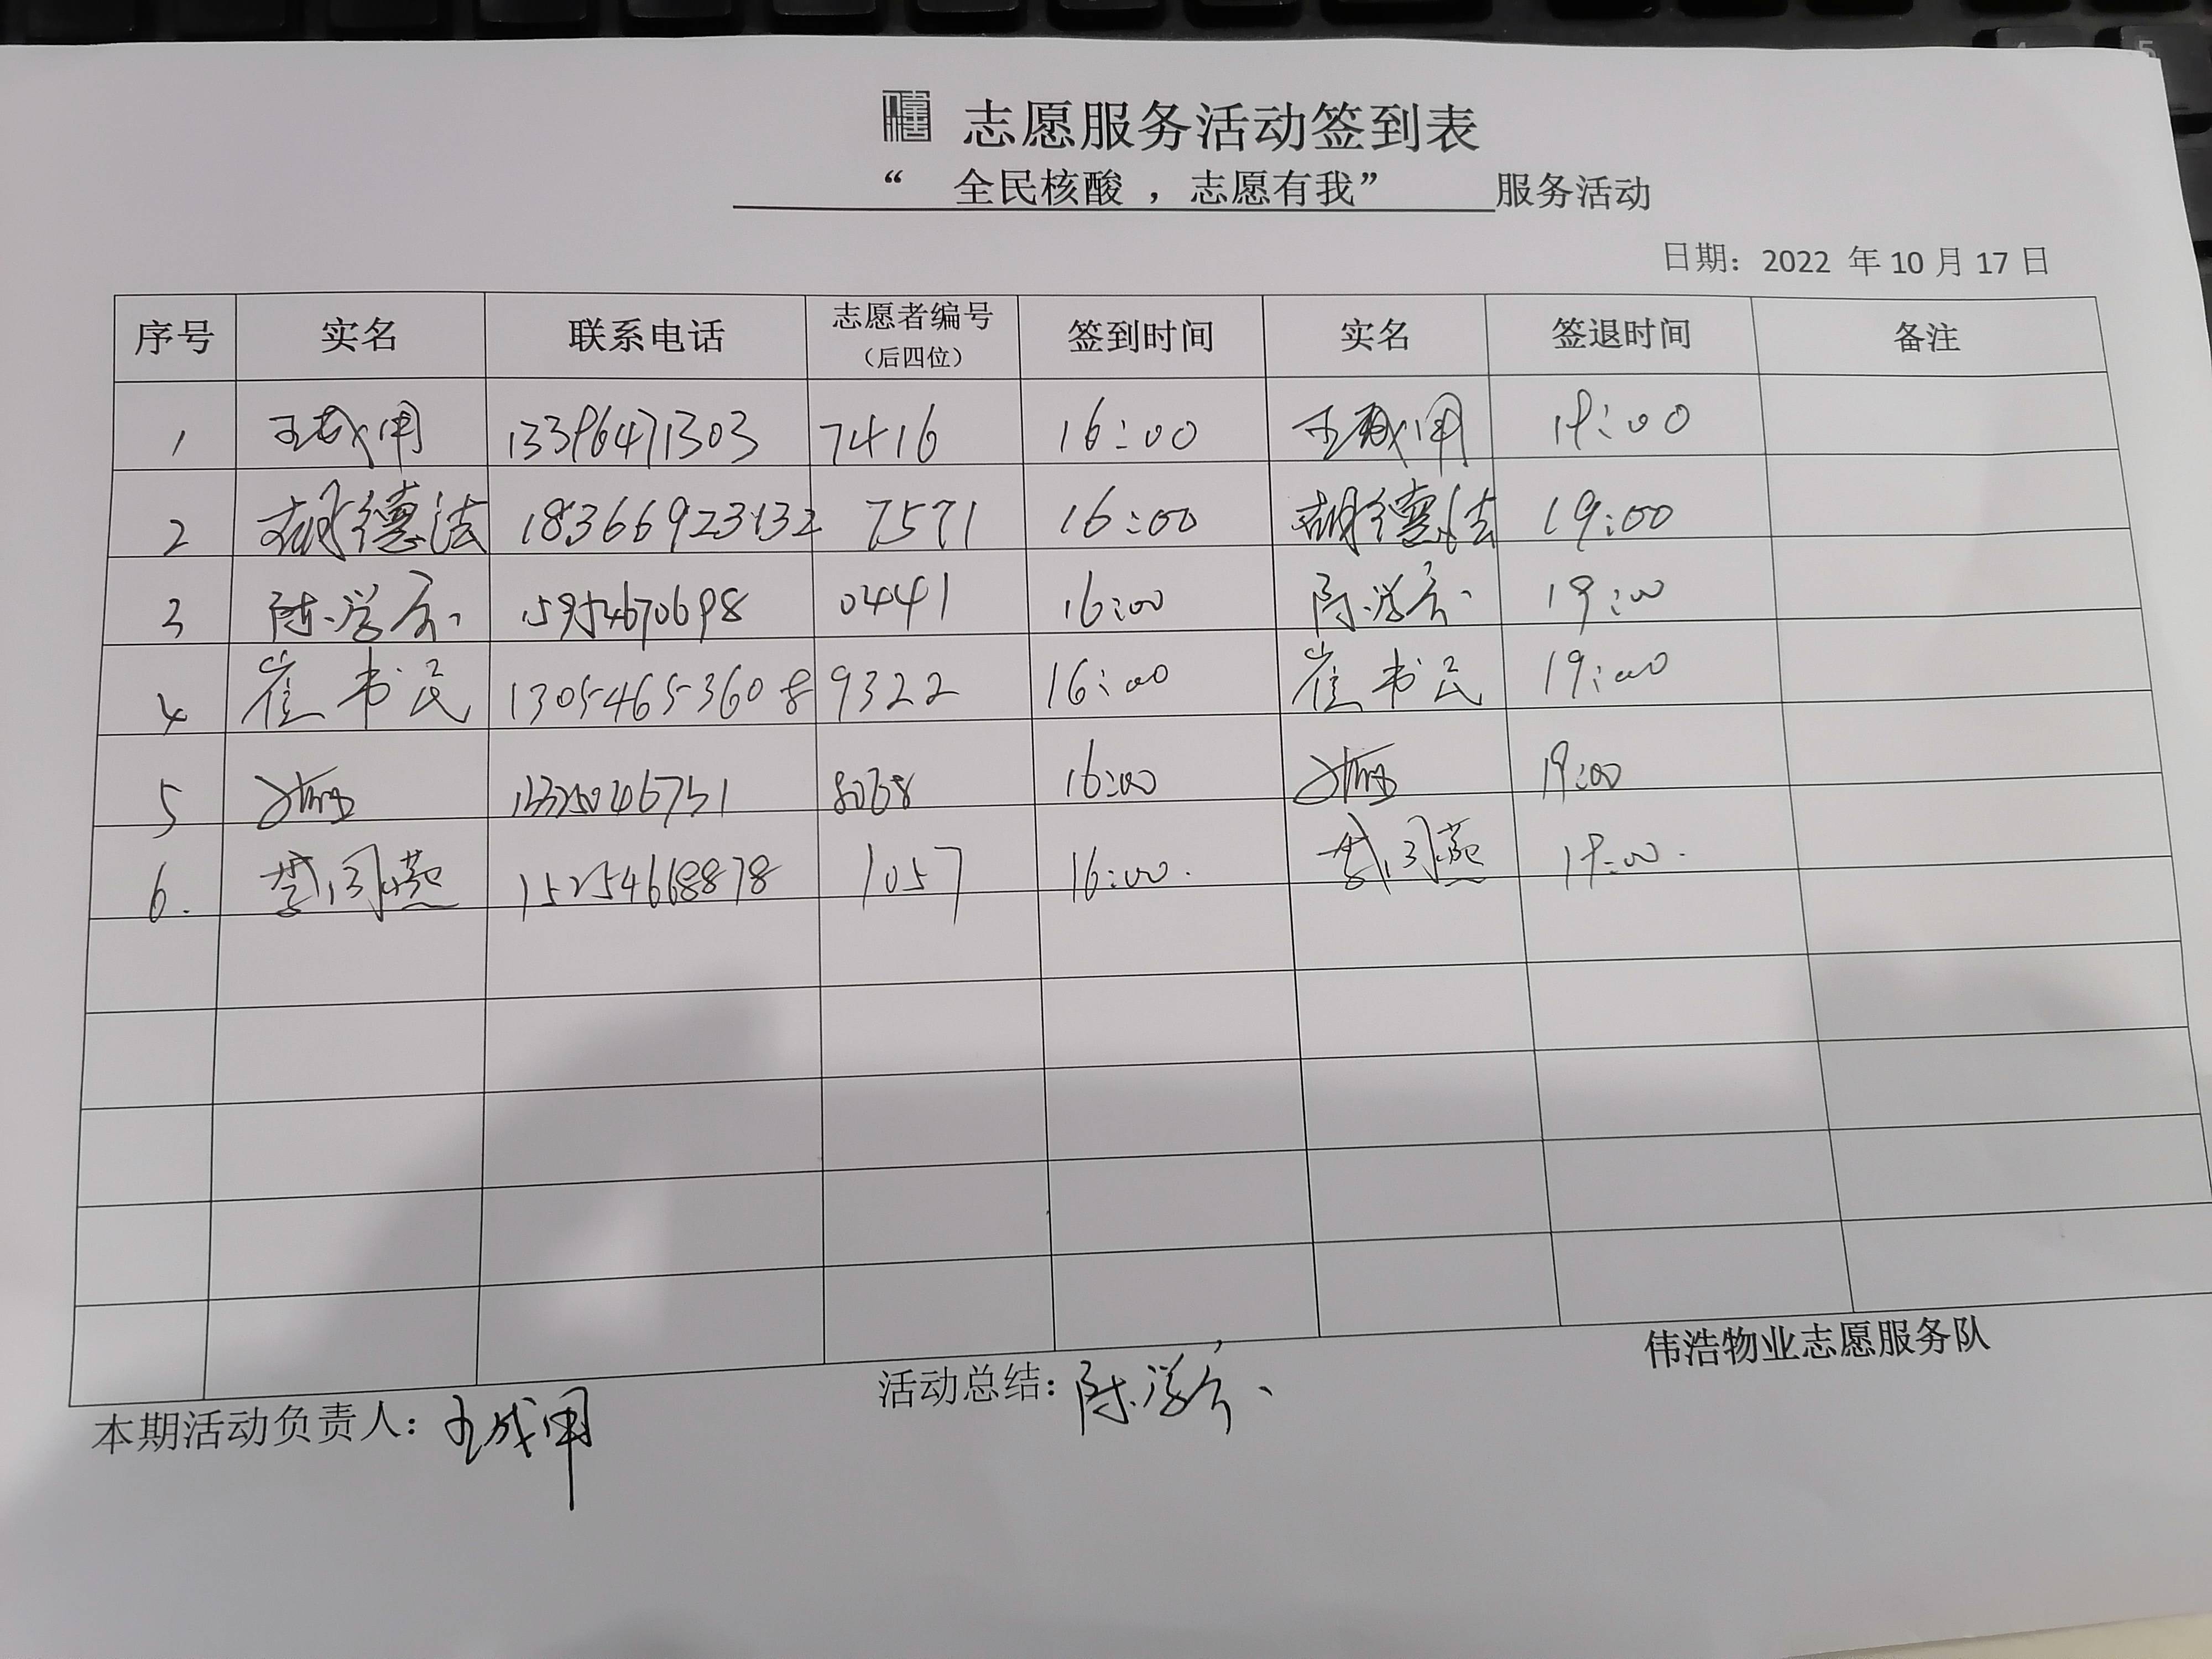 志愿服务活动签到表
“ 全民核酸 ，志愿有我” 服务活动
日期：2022 年 10 月 17 日
序号 实名 联系电话 志愿者编号（后四位） 签到时间 实名 签退时间 备注
1 王成甲 13396471303 7416 16:00 王成甲 19:00
2 胡德法 18366923132 7571 16:00 胡德法 19:00
3 陈学 15954670698 0441 16:00 陈学 19:00
4 崔书民 13054653608 9322 16:00 崔书民 19:00
5 16:00 19:00
6. 15254668878 1057 16:00. 19:00.
伟浩物业志愿服务队
本期活动负责人：王成甲 活动总结：陈学